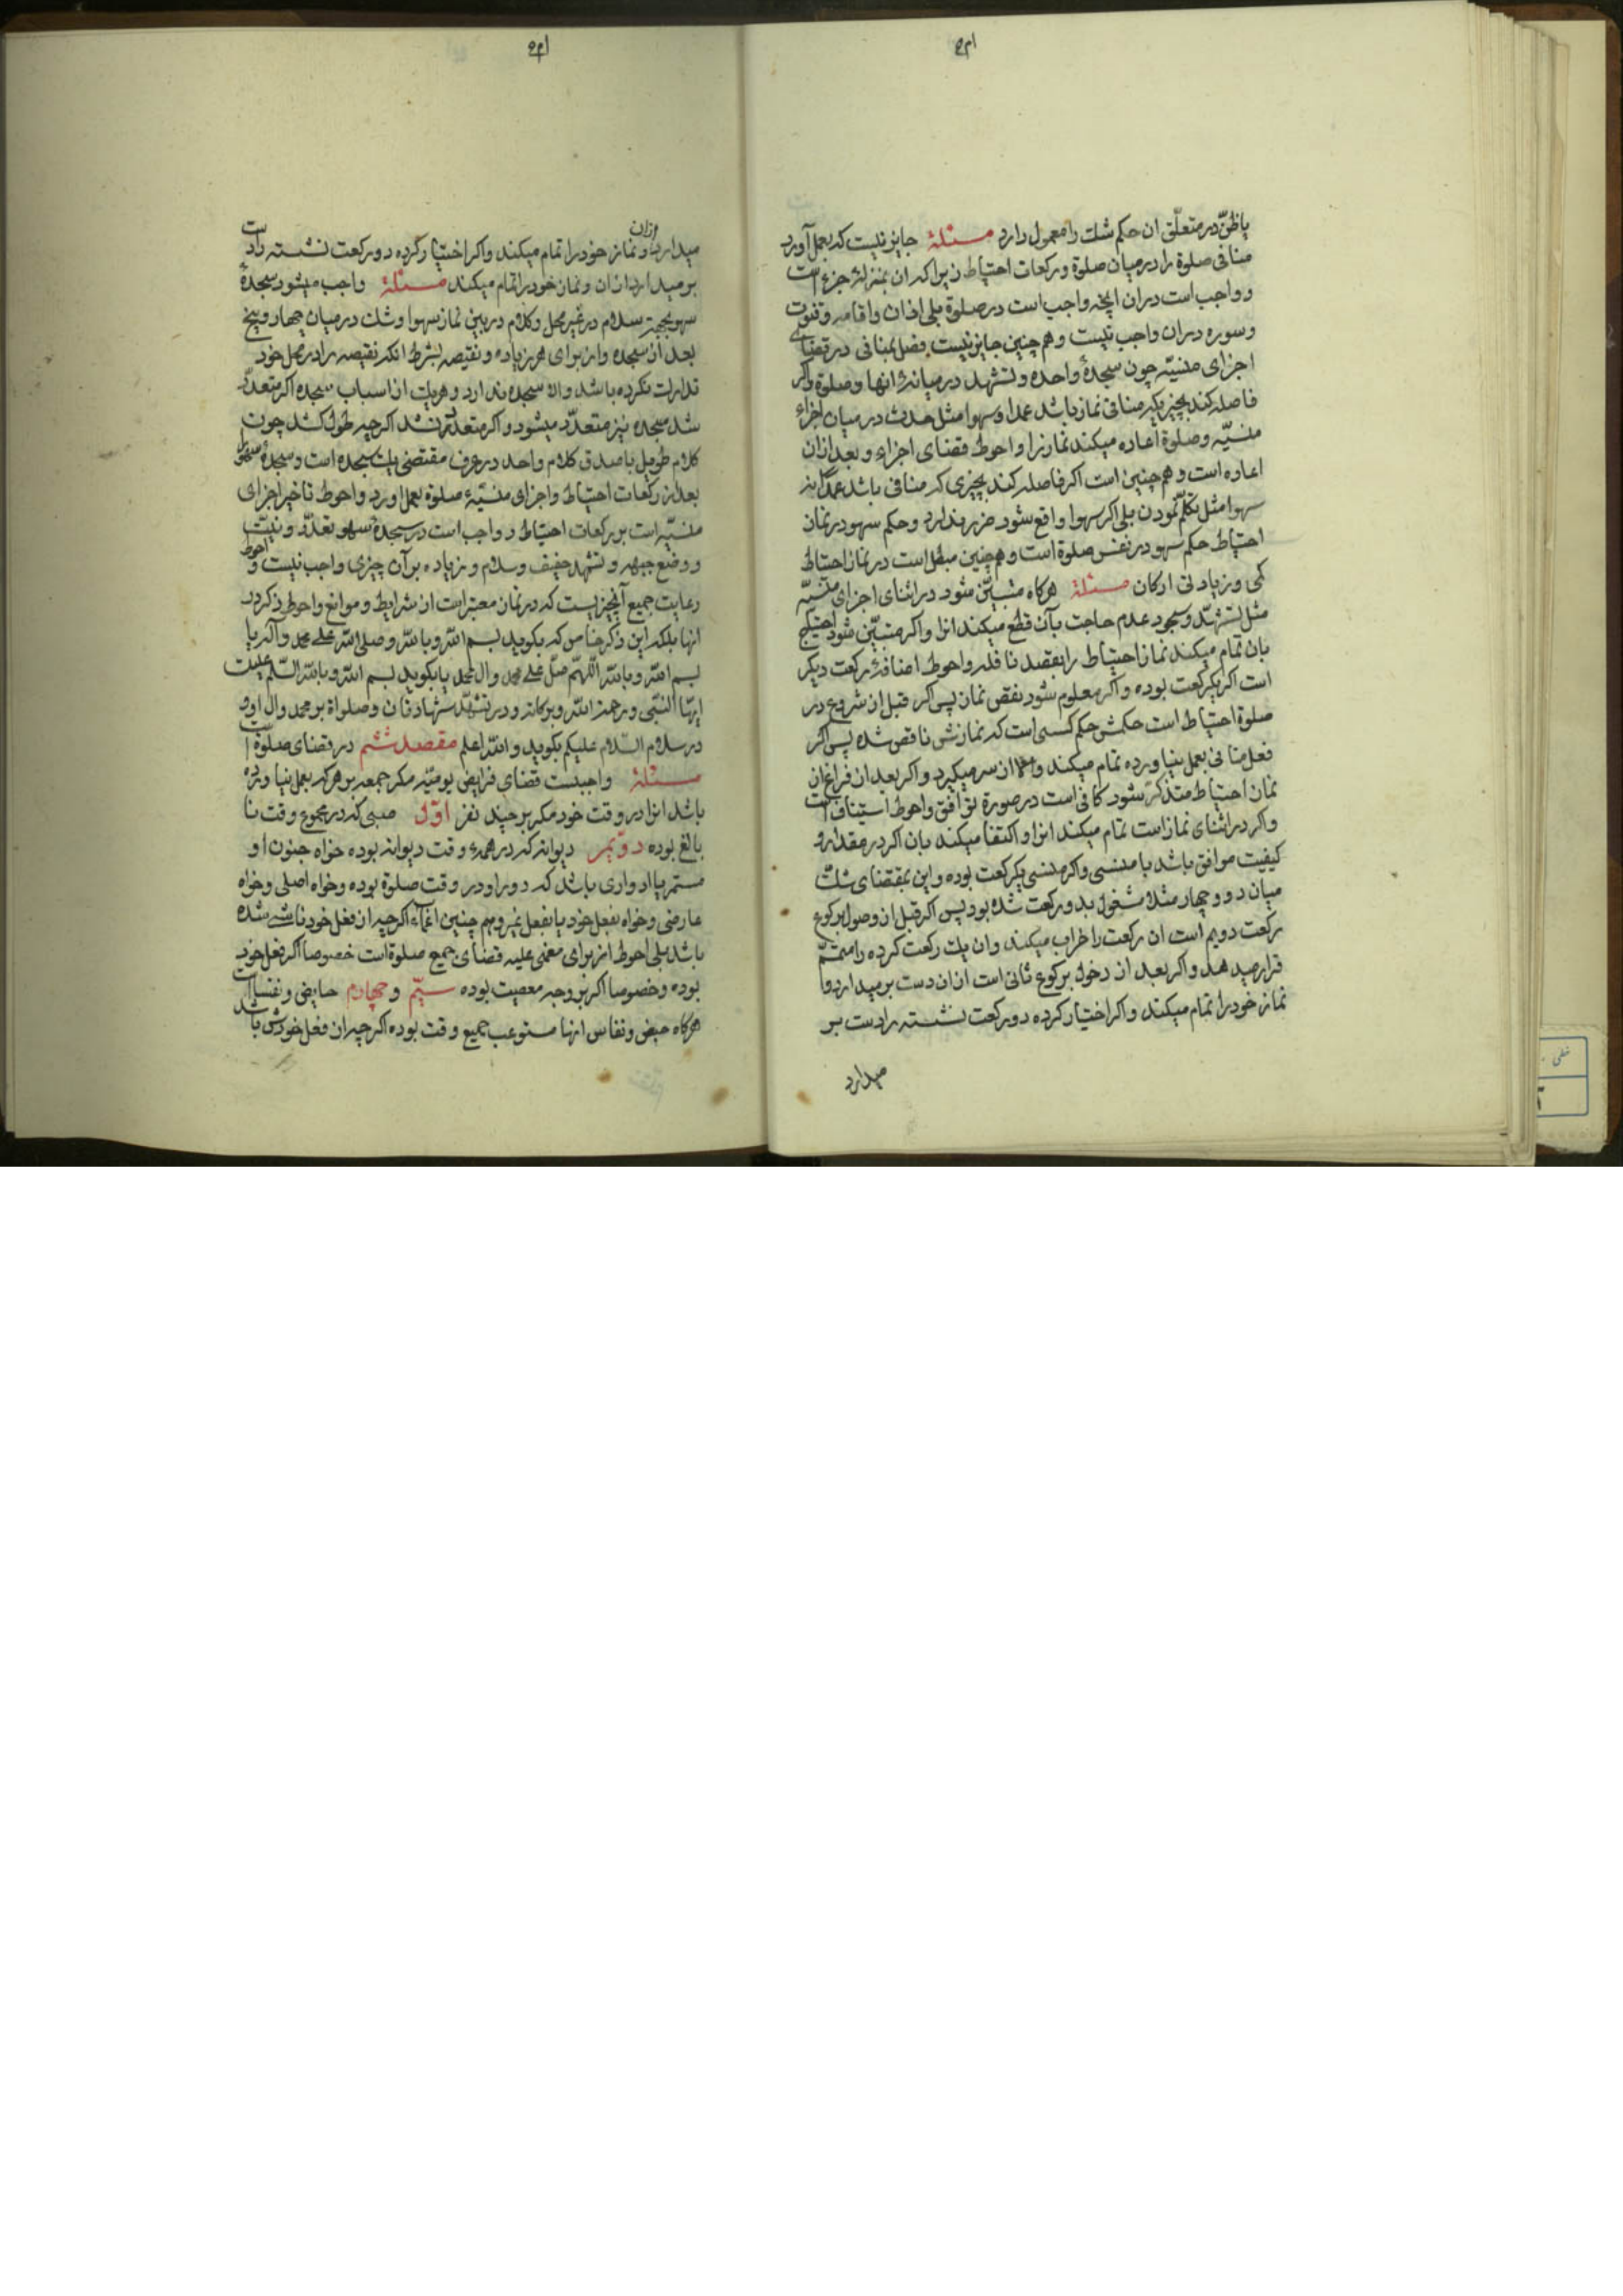 یا ظنّ در متعلّق ان حکم شک را معمول دارد مسئلهٔ جایز نیست که بعمل آورد
منافی صلوة را در میان صلوة و رکعات احتیاط زیرا که ان بمنزلهٔ جزء است
و واجب است در ان انچه واجب است در صلوة بلی اذان و اقامه و قنوت
و سوره در ان واجب نیست و هم چنین جایز نیست فصل بمنافی در قضای
اجزای منسیّه چون سجدهٔ واحده و تشهد در میانهٔ انها و صلوة و اکر
فاصله کند بچیزیکه منافی نماز باشد عمدا و سهوا مثل حدث در میان اجزاء
منسیّه و صلوة اعاده میکند نماز را و احوط قضای اجزاء و بعد ازان
اعاده است و هم چنین است اکر فاصله کند بچیزی که منافی باشد عمدا نه
سهوا مثل تکلّم نمودن بلی اکر سهوا واقع شود ضرر ندارد و حکم سهو در نماز
احتیاط حکم سهو در نفس صلوة است و هم چنین مبطل است در نماز احتیاط
کمی و زیادتی ارکان مسئلهٔ هرکاه متبیّن شود در اثنای اجزای منسیّه
مثل تشهّد و سجود عدم حاجت بآن قطع میکند انرا و اکر متبیّن شود احتیاج
بان تمام میکند نماز احتیاط را بقصد نافله و احوط اضافهٔ رکعت دیکر
است اکر یکرکعت بوده و اکر معلوم شود نقص نماز پس اکر قبل از شروع در
صلوة احتیاط است حکمش حکم کسی است که نمازش ناقص شده پس اکر
فعل منافی بعمل نیاورده تمام میکند والا از سر میکیرد و اکر بعد از فراغ از
نماز احتیاط متذکّر شود کافی است در صورة توافق و احوط استیناف است
و اکر در اثنای نماز است تمام میکند انرا و اکتفا میکند بان اکر در مقدار و
کیفیت موافق باشد با منسی و اکر منسی یکرکعت بوده و این بمقتضای شک
میان دو و چهار مثلا مشغول بدو رکعت شده بود پس اکر قبل از وصول برکوع
رکعت دویم است ان رکعت را خراب میکند و ان یک رکعت کرده را متمّم
قرار میدهد و اکر بعد از دخول برکوع ثانی است ازان دست برمیدارد و
نماز خود را تمام میکند و اکر اختیار کرده دو رکعت نشسته را دست بر
میدارد
میدارد ازان و نماز خود را تمام میکند و اکر اختیار کرده دو رکعت نشسته را دست
برمیدارد ازان و نماز خود را تمام میکند مسئلهٔ واجب میشود سجدهٔ
سهو بجهة سلام در غیر محل و کلام در بین نماز سهوا و شک در میان چهار و پنج
بعد از سجده و از برای هر زیاده و نقیصه بشرط انکه نقیصه را در محل خود
تدارک نکرده باشد والا سجده ندارد و هریک از اسباب سجده اکر متعدّد
شد سجده نیز متعدّد میشود و اکر متعدّد نشد اکرچه طول کشد چون
کلام طویل با صدق کلام واحد در عرف مقتضی یک سجده است و سجدهٔ سهو را
بعد از رکعات احتیاط و اجزای منسیّهٔ صلوة بعمل اورد و احوط تاخیر اجزای
منسیّه است بر رکعات احتیاط و واجب است در سجدهٔ سهو تعدّد و نیّت
و وضع جبهه و تشهد خفیف و سلام و زیاده بر آن چیزی واجب نیست و احوط
رعایت جمیع آنچیزیست که در نماز معتبر است از شرایط و موانع و احوط ذکر در
انها بلکه این ذکر خاص که بکوید بسم الله و بالله و صلی الله علی محمد و آله یا
بسم الله و بالله اللّهمّ صلّ علی محمد و ال محمد یا بکوید بسم الله و بالله السّلام علیک
ایّها النّبی و رحمة الله و برکاته و در تشهّد شهادتان و صلواة بر محمد و ال او و
در سلام السّلام علیکم بکوید و الله اعلم مقصد ششم در قضای صلوة است
مسئلهٔ واجبست قضای فرایض یومیّه مکر جمعه بر هرکه بعمل نیاورده
باشد انرا در وقت خود مکر بر چند نفر اوّل صبی که در مجموع وقت نا
بالغ بوده دوّیم دیوانه که در همهٔ وقت دیوانه بوده خواه جنون او
مستمر یا ادواری باشد که دور او در وقت صلوة بوده و خواه اصلی و خواه
عارضی و خواه بفعل خود یا بفعل غیر و هم چنین اغماء اکرچه از فعل خود ناشی شده
باشد بلی احوط از برای مغمی علیه قضای جمیع صلوة است خصوصا اکر بفعل خود
بوده و خصوصا اکر بر وجه معصیت بوده سیّم و چهارم حایض و نفسا است
هرکاه حیض و نفاس انها مستوعب جمیع وقت بوده اکرچه از فعل خودش باشد